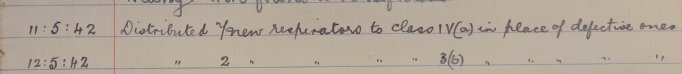 11:5:42 Distributed 7 new respirators to class IV(a) in place of defective ones
12:5:42 " 2 " " " " 3(b) " " " " "